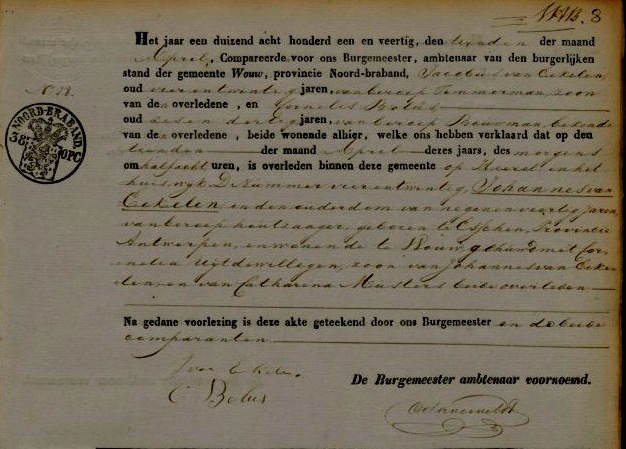 8
Het jaar een duizend acht honderd een en veertig, den tienden der maand
April, Compareerde voor ons Burgemeester, ambtenaar van den burgerlijken
N. 28. stand der gemeente Wouw, provincie Noord-braband, Jacobus van Eekelen,
oud vier en twintig jaren, van beroep Timmerman, zoon
van den overledene, en Cornelis Bolus
oud dertig jaren, van beroep Bouwman, bekende
van den overledene, beide wonende alhier, welke ons hebben verklaard dat op den
tienden der maand April dezes jaars, des morgens
om half acht uren, is overleden binnen deze gemeente op Heerel in het
huis wijk D Nummer vier en twintig, Johannes van
Eekelen in den ouderdom van negen en veertig jaren,
van beroep houtzager, geboren te Esschen, Provintie
Antwerpen, en wonende te Wouw, gehuwd met Cor-
nelia Uijtdewillegen, zoon van Johannes van Eeke-
len, en van Catharina Musters beide overleden
Na gedane voorlezing is deze akte geteekend door ons Burgemeester en de beide
comparanten
J van Ekelen.
C Bolus
De Burgemeester ambtenaar voornoemd.
NOORD-BRABAND
38
OPC